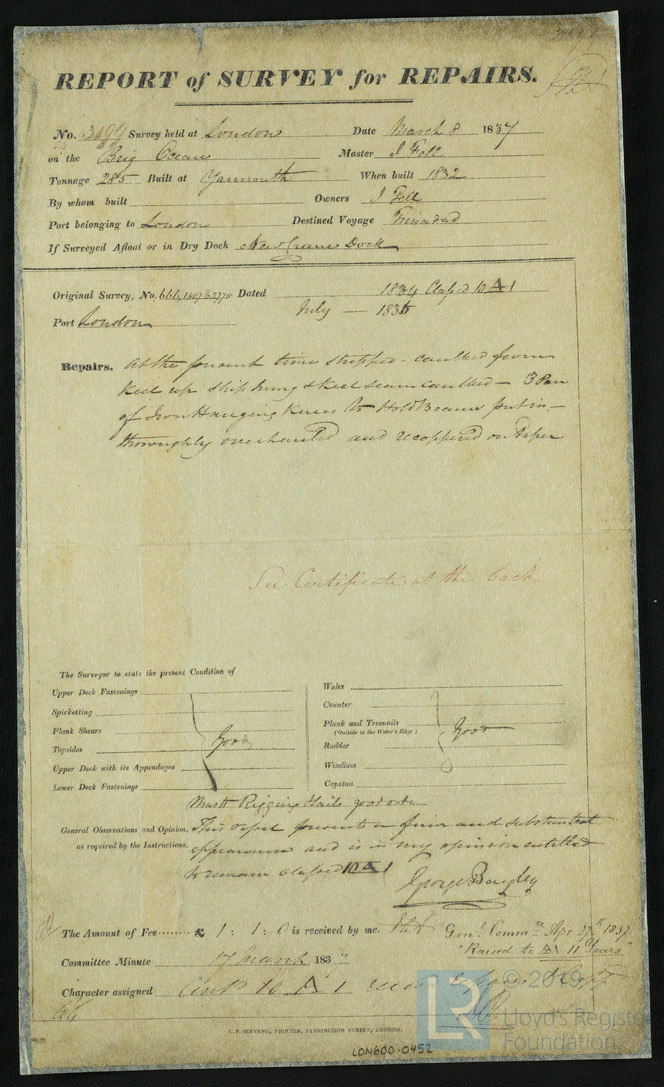 REPORT of SURVEY for REPAIRS.
No. 3499 Survey held at London Date March 8 1837
on the Brig Ocean Master J Fell
Tonnage 285 Built at Yarmouth When built 1832
By whom built Owners J Fell
Port belonging to London Destined Voyage Trinidad
If Surveyed Afloat or in Dry Dock New Crane Dock
Original Survey, No. 666, 1307 & 2775 Dated 1834 Classed 10 A 1
Port London July 1836
Repairs. At the present time stripped - caulked from
Keel up ship hung & keel seam caulked - 3 Pair
of Iron Hanging Knees to Hold Beams put in -
thoroughly overhauled and recoppered on Paper
See Certificate at the back
The Surveyor to state the present Condition of
Upper Deck Fastenings
Spirketting
Plank Shears
Topsides Good
Upper Deck with its Appendages
Lower Deck Fastenings
Wales
Counter
Plank and Treenails
(Outside to the Water's Edge) Good
Rudder
Windlass
Capstan
Masts Rigging & Sails good order
General Observations and Opinion, This vessel presents a fair and substantial
as required by the Instructions. appearance and is in my opinion entitled
to remain classed 10 A 1
George Bayley
The Amount of Fee £ 1 : 1 : 0 is received by me. Genl. Commee. Apr 27th 1837
"Raised to A 11 Years"
Committee Minute 17 March 183
Character assigned 10 A 1
G. F. SEYFANG, PRINTER, FARRINGDON STREET, LONDON.
LON600-0452
LR © 2019
Lloyd's Register
Foundation